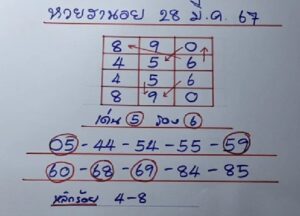 หวยฮานอย 28 มี.ค. 67
8 9 0
4 5 6
4 5 6
8 9 0
เด่น 5 รอง 6
05-44-54-55-59
60-68-69-84-85
หลักร้อย 4-8